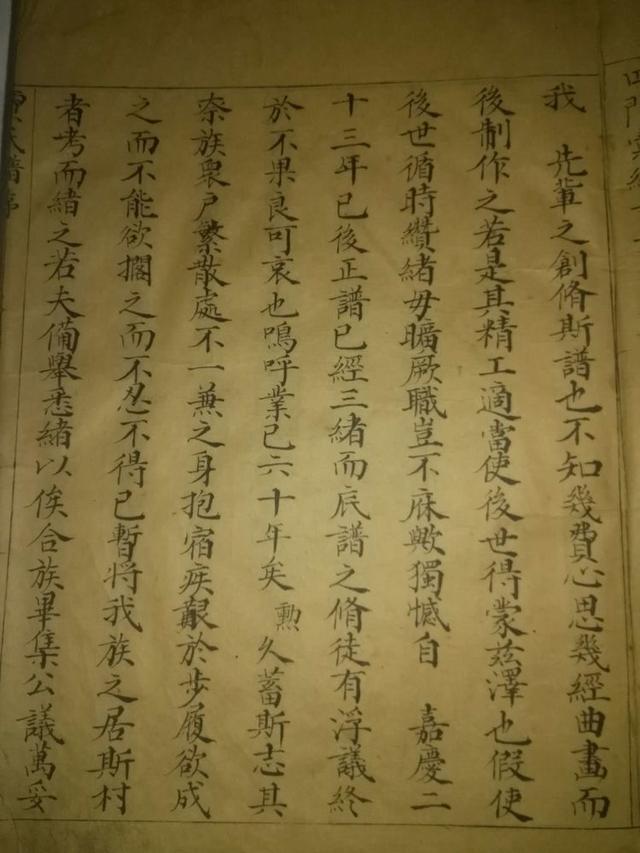 我　先輩之創脩斯譜也不知幾費心思幾經曲畫而
後制作之若是其精工適當使後世得蒙玆澤也假使
後世循時纘緒毋曠厥職豈不庥歟獨憾自　嘉慶二
十三年已後正譜已經三緒而底譜之脩徒有浮議終
於不果良可哀也嗚呼業已六十年矣勲久蓄斯志其
柰族衆戶繁散處不一兼之身抱宿疾艱於步履欲成
之而不能欲擱之而不忍不得已暫將我族之居斯村
者考而緒之若夫備舉悉緒以俟合族畢集公議萬妥
氏譜序